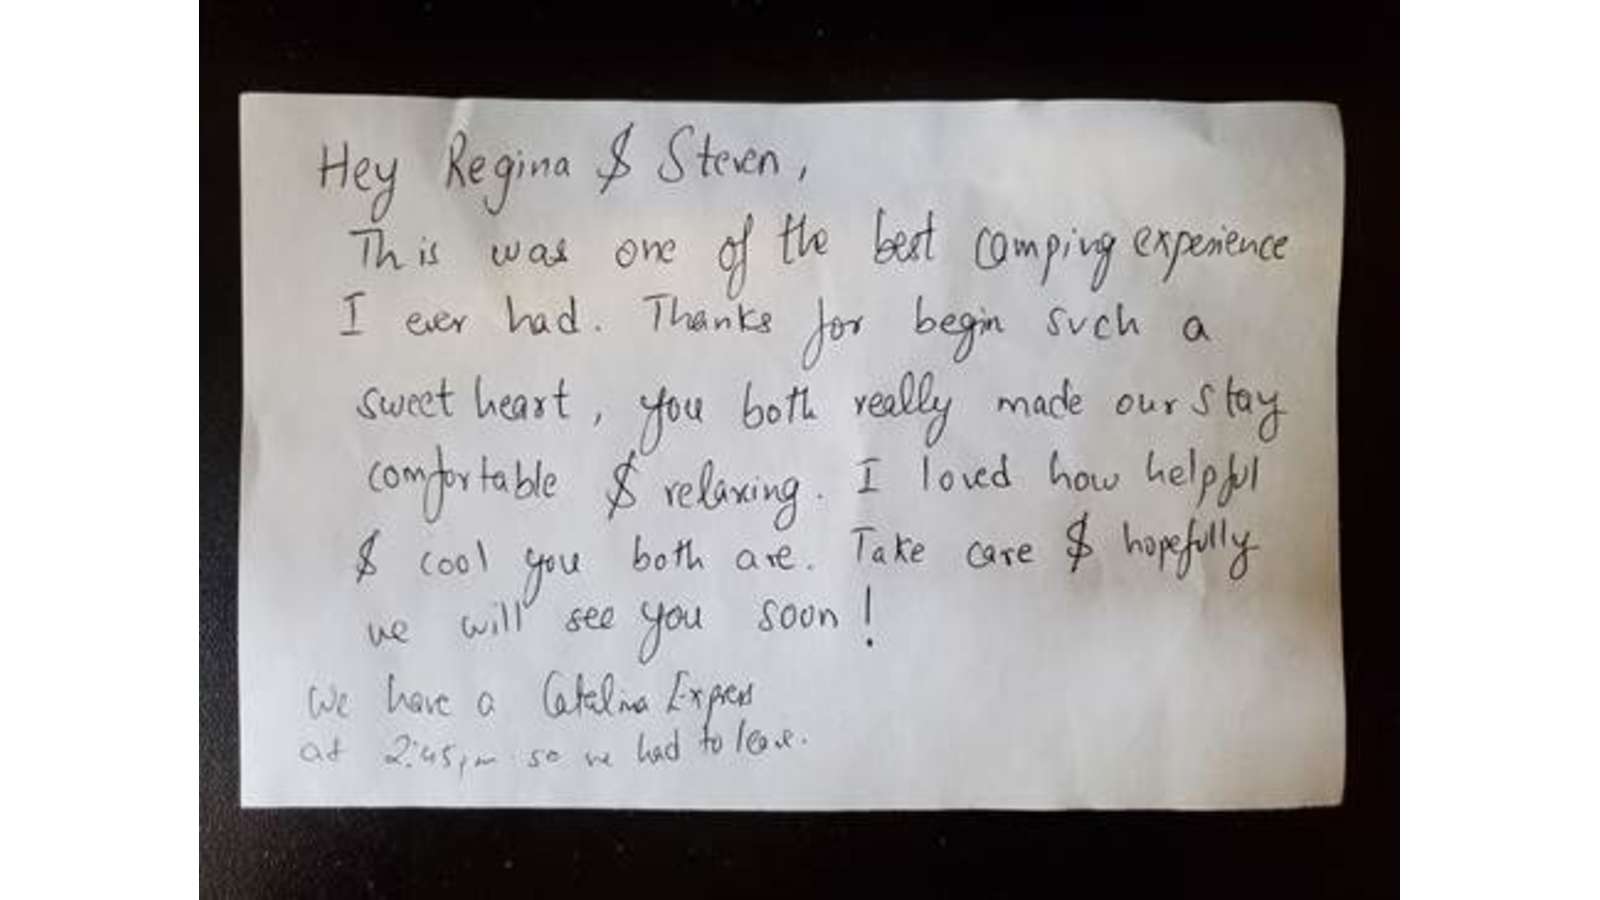 Hey Regina & Steven,
This was one of the best camping experience
I ever had. Thanks for begin such a
sweet heart, you both really made our stay
comfortable & relaxing. I loved how helpful
& cool you both are. Take care & hopefully
we will see you soon!
We have a Catalina Express
at 2:45pm so we had to leave.